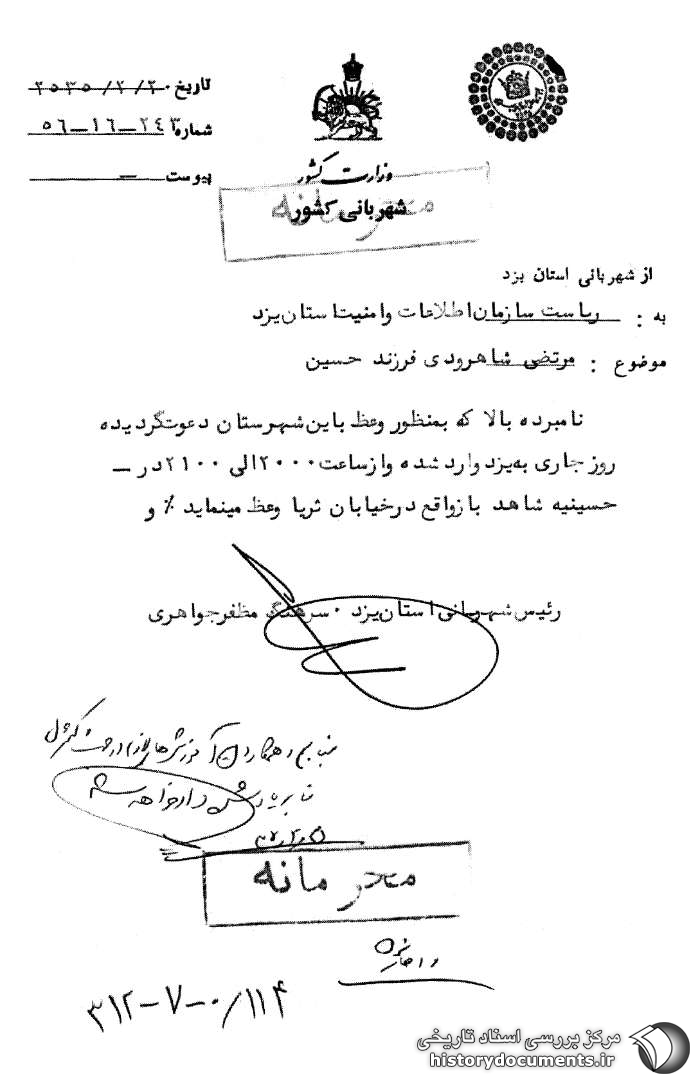 تاریخ ۲۵۳۵/۲/۲۰
شماره ۲۴۳-۱۶-۵۶
پیوست —
وزارت کشور
شهربانی کشور
محرمانه
از شهربانی استان یزد
به : ریاست سازمان اطلاعات و امنیت استان یزد
موضوع : مرتضی شاهرودی فرزند حسین
نامبرده بالا که بمنظور وعظ باین شهرستان دعوت گردیده
روز جاری به یزد وارد شده و از ساعت ۲۰۰۰ الی ۲۱۰۰ در —
حسینیه شاهد باز واقع در خیابان ثریا وعظ مینماید ٪ و
رئیس شهربانی استان یزد ۰ سرهنگ مظفر جواهری
محرمانه
۳۱۲-۷-۰/۱۱۴
مرکز بررسی اسناد تاریخی
historydocuments.ir